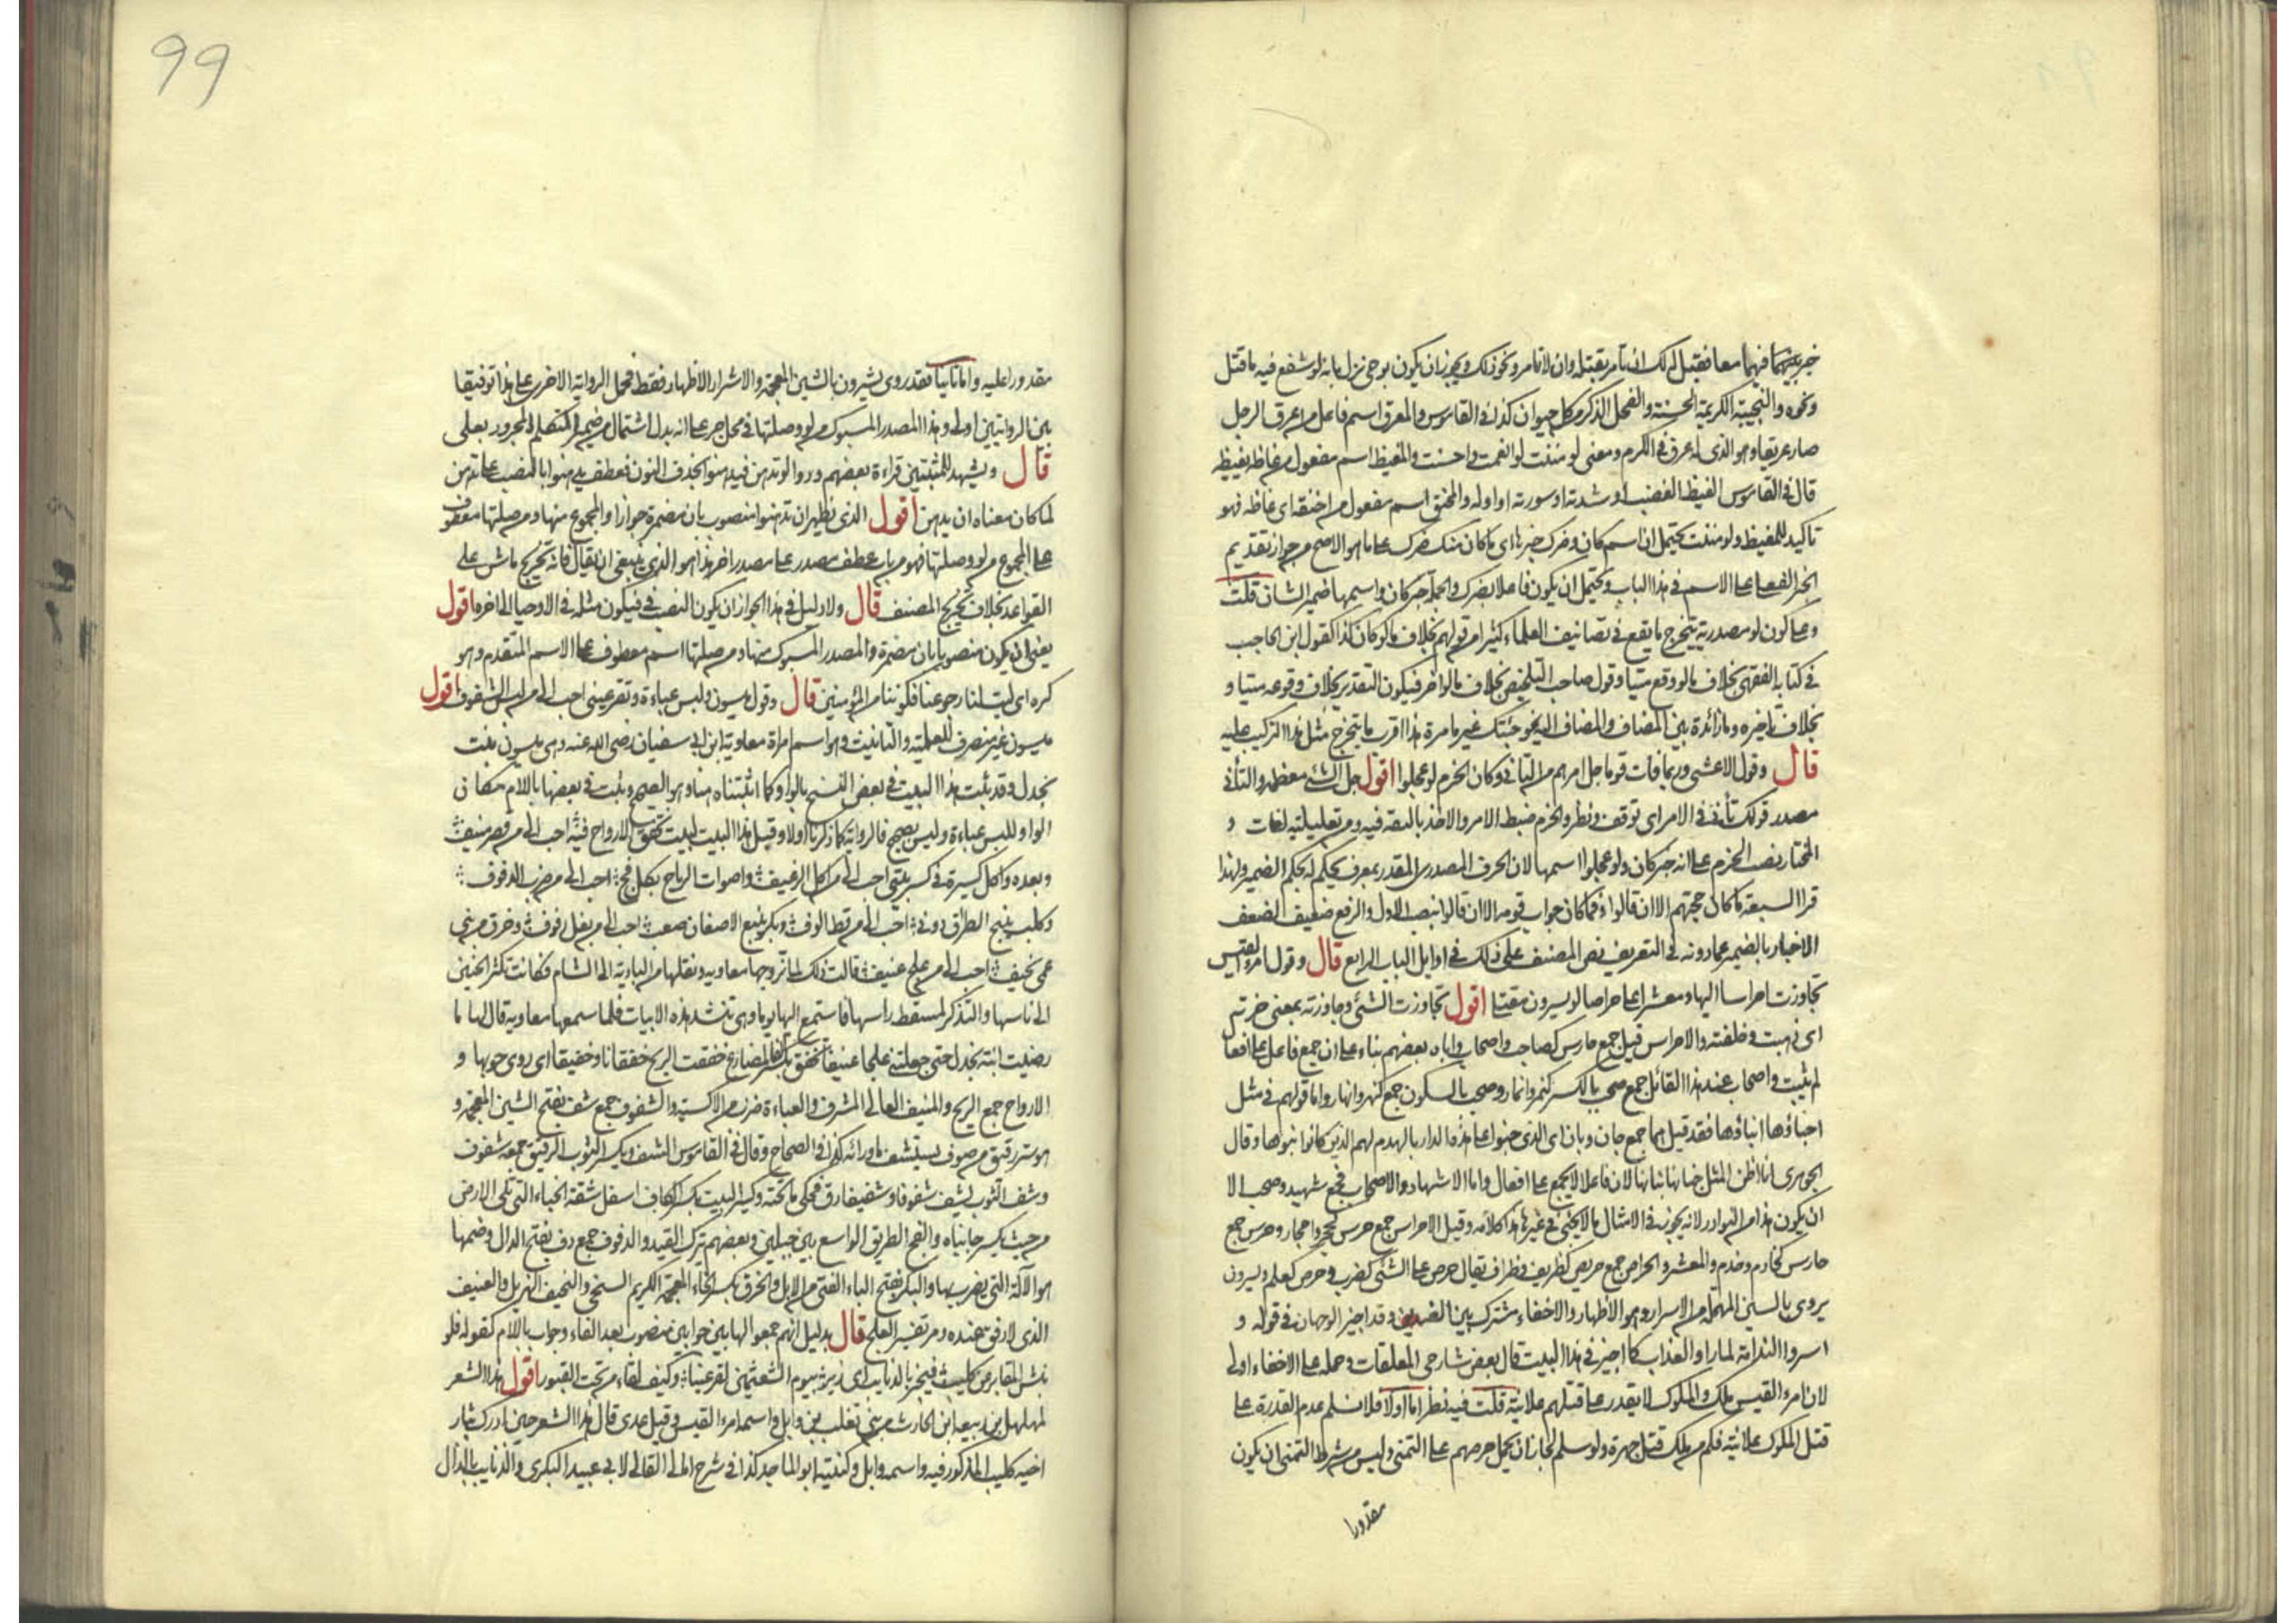 خير بينهما فيهما معا فقيل له لك ان تأمر بقتله وان لا تأمر ونحو ذلك ويجوز ان يكون بوحي نزل بانه لو شفع فيه ما قتل
ونحوه والنجيبة الكريمة الحسنة والفحل الذكر من كل حيوان كذا في القاموس والمعرق اسم فاعل من اعرق الرجل
صار عريقا وهو الذي له عرق في الكرم ومعنى لو مننت لو انعمت واحسنت والمغيظ اسم مفعول من غاظه يغيظه
قال في القاموس الغيظ الغضب او شدته او سورته او اوله والمحنق اسم مفعول من احنقه اي غاظه فهو
تاكيد للمغيظ ولو مننت يحتمل ان اسم كان وضرك خبرها اي ما كان منك ضرك على ما هو الاصح من جواز تقديم
الخبر الفعلي على الاسم في هذا الباب ويحتمل ان يكون فاعلا بضرك والجملة خبر كان واسمها ضمير الشان قلت
وعلى كون لو مصدرية يتخرج ما يقع في تصانيف العلماء كثيرا من قولهم بخلاف ما لو كان كذا كقول ابن الحاجب
في كتابه الفقهي بخلاف ما لو وقع ميتا وقول صاحب التلخيص بخلاف ما لو اخر فيكون التقدير بخلاف وقوعه ميتا و
بخلاف تاخيره وما زائدة بين المضاف والمضاف اليه نحو جئتك غير ما مرة هذا اقرب ما يتخرج مثل هذا التركيب عليه
قال وقول الاعشى وربما فات قوما جل امرهم من التاني وكان الحزم لو عجلوا اقول جل الشئ معظمه والتأني
مصدر قولك تأنى في الامر اي توقف ونظر والحزم ضبط الامر والاخذ بالثقة فيه ومن تعليلية لغات و
المختار نصب الحزم على انه خبر كان ولو عجلوا اسمها لان الحرف المصدري المقدر بمعرف يحكم له بحكم الضمير ولهذا
قرا السبعة ما كان حجتهم الا ان قالوا فما كان جواب قومه الا ان قالوا بنصب الاول والرفع ضعيف لضعف
الاخبار بالضمير عما دونه في التعريف نص المصنف على ذلك في اوايل الباب الرابع قال وقول امرئ القيس
تجاوزت احراسا اليها ومعشرا على حراصا لو يسرون مقتلي اقول تجاوزت الشئ وجاوزته بمعنى جزته
اي ذهبت وخلفته والاحراس قيل جمع حارس كصاحب واصحاب واباه بعضهم بناء على ان جمع فاعل على افعال
لم يثبت واصحاب عند هذا القائل جمع صحب بالكسر كنمر وانمار وصحب بالسكون جمع كنهر وانهار واما قولهم في مثل
احناؤها ابناؤها فقد قيل هما جمع جان وبان اي الذي جنوا على هذه الدار بالهدم لهم الذين كانوا بنوها وقال
الجوهري انا اظن المثل جناتها بناتها لان فاعلا لا يجمع على افعال واما الاشهاد والاصحاب فجمع شهيد وصحب الا
ان يكون هذا من النوادر لانه يجوز في الامثال ما لا يجئ في غيرها هذا كلامه وقيل الاحراس جمع حرس كحجر واحجار وحرس جمع
حارس كخادم وخدم والمعشر والحراص جمع حريص كظريف وظراف يقال حرص على الشئ كضرب وحرص كعلم ويسرون
يروى بالسين المهملة من الاسرار وهو الاظهار والاخفاء مشترك بين الضدين وقد اجيز الوجهان في قوله و
اسروا الندامة لما راوا العذاب كما اجيز في هذا البيت قال بعض شارحي المعلقات وحمله على الاخفاء اولى
لان امرء القيس ملك والملوك لا يقدر على قتلهم علانية قلت فيه نظر اما اولا فلا نسلم عدم القدرة على
قتل الملوك علانية فكم من ملك قتل جهرة ولو سلم لجاز ان يحمل حرصهم على التمني وليس من شرط التمني ان يكون
مقدورا
99
مقدورا عليه واما ثانيا فقد روى يشرون بالشين المعجمة والاشرار الاظهار فقط فحمل الرواية الاخرى على هذا توفيقا
بين الروايتين اولى وهذا المصدر المسبوك من لو وصلتها في محل جر على انه بدل اشتمال من ضمير المتكلم المجرور بعلى
قال ويشهد للمثبتين قراءة بعضهم ودوا لو تدهن فيدهنوا بحذف النون فعطف يدهنوا بالنصب على تدهن
لما كان معناه ان يدهن اقول الذي يظهر ان تدهنوا منصوب بان مضمرة جوازا والمجموع منها ومن صلتها معطوف
على المجموع من لو وصلتها فهو من باب عطف مصدر على مصدر اخر هذا هو الذي ينبغي ان يقال فانه تخريج ماش على
القواعد بخلاف تخريج المصنف قال ولا دليل في هذا الجواز ان يكون النصب في فيكون مثله في الا وحيا الى اخره اقول
يعني ان يكون منصوبا بان مضمرة والمصدر المسبوك منها ومن صلتها اسم معطوف على الاسم المتقدم وهو
كره اي ليت لنا رجوعنا فكوننا من المؤمنين قال وقول ميسون ولبس عباءة وتقر عيني احب الي من لبس الشفوف اقول
ميسون غير منصرف للعلمية والتانيث وهو اسم امراة معاوية ابن ابي سفيان رضي الله عنه وهي ميسون بنت
بحدل وقد ثبت هذا البيت في بعض النسخ بالواو كما اثبتناه هنا وهو الصحيح وثبت في بعضها باللام مكان
الواو للبس عباءة وليس بصحيح فالرواية كما ذكرنا اولا وقيل هذا البيت لبيت تخفق الارواح فيه احب الي من قصر منيف
وبعده واكل كسيرة في كسر بيتي احب الي من اكل الرغيف واصوات الرياح بكل فج احب الي من ضرب الدفوف
وكلب ينبح الطراق دوني احب الي من قط الوف وبكر يتبع الاضعان صعب احب الي من بغل زفوف وخرق من بني
عمي نحيف احب الي من علج عنيف قالت ذلك لما تزوجها معاويه ونقلها من البادية الى الشام فكانت تكثر الحنين
الى ناسها والتذكر لمسقط راسها فاستمع اليها يوما وهي تنشد هذه الابيات فلما سمعها معاويه قال لها ما
رضيت ابنة بحدل حتى جعلتني علجا عنيفا تخفق بكسر الفاء المضارع خفقت الريح خفقانا وخفيقا اي دوى جريها و
الارواح جمع الريح والمنيف العالي المشرف والعباءة ضرب من الاكسية والشفوف جمع شف بفتح الشين المعجمة و
هو ستر رقيق من صوف يستشف ما ورائه كذا في الصحاح وقال في القاموس الشف ويكسر الثوب الرقيق جمعه شفوف
وشف الثوب يشف شفوفا وشفيفا رق فحكى ما تحته وكسر البيت بكسر الكاف اسفل شقة الخباء التي تلي الارض
من حيث يكسر جانباه والفج الطريق الواسع بين جبلين وبعضهم ترك القيد والدفوف جمع دف بفتح الدال وضمها
هو الآلة التي يضرب بها والبكر بفتح الباء الفتي من الابل والخرق بكسر الخاء المعجمة الكريم السخي والنحيف الهزيل والعنيف
الذي لا رفق عنده ومر تفسير العلج قال بدليل انهم جمعوا لها بين جوابين منصوب بعد الفاء وجواب باللام كقوله فلو
نبش المقابر عن كليب فيخبر بالذنايب اي زير بيوم الشعثمين لقر عينا وكيف لقاء من تحت القبور اقول هذا الشعر
لمهلهل بن ربيعه ابن الحارث من بني تغلب بن وايل واسمه امرء القيس وقيل عدى قال هذا الشعر حين ادرك بثار
اخيه كليب المذكور فيه واسمه وايل وكنيته ابو الماجد كذا في شرح امالي القالي لابي عبيد البكري والذنايب بالذال